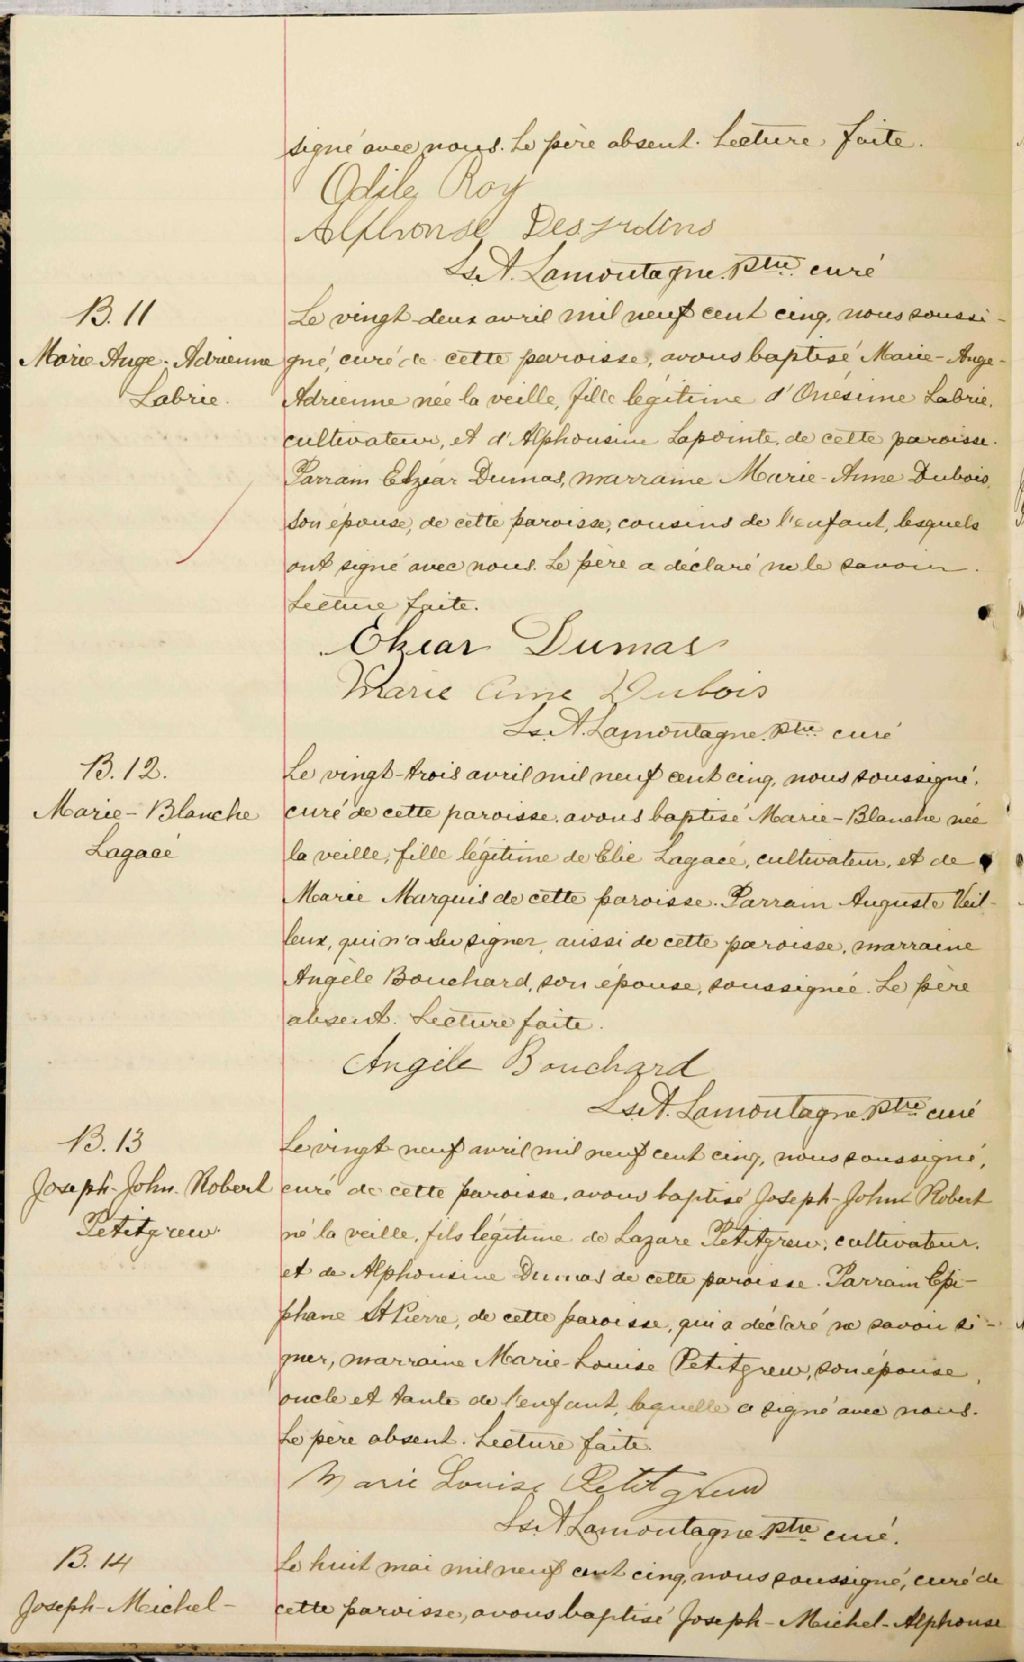 signé avec nous. Le père absent. Lecture faite.
Odile Roy
Alphonse Desjrdins
Ls. A. Lamontagne. Ptre curé
B. 11
Marie-Ange-Adrienne
Labrie.
Le vingt-deux avril mil neuf cent cinq, nous soussi-
gné, curé de cette paroisse, avons baptisé Marie-Ange-
Adrienne née la veille, fille légitime d'Onésime Labrie,
cultivateur, et d'Alphonsine Lapointe, de cette paroisse.
Parrain Elzéar Dumas, marraine Marie-Anne Dubois,
son épouse, de cette paroisse, cousins de l'enfant, lesquels
ont signé avec nous. Le père a déclaré ne le savoir.
Lecture faite.
Elzear Dumas
Marie Anne Dubois
Ls. A. Lamontagne. Ptre curé
B. 12.
Marie-Blanche
Lagacé
Le vingt-trois avril mil neuf cent cinq, nous soussigné,
curé de cette paroisse, avons baptisé Marie-Blanche née
la veille, fille légitime de Elie Lagacé, cultivateur, et de
Marie Marquis de cette paroisse. Parrain Auguste Veil-
leux, qui n'a su signer, aussi de cette paroisse, marraine
Angèle Bouchard, son épouse, soussignée. Le père
absent. Lecture faite.
Angèle Bouchard
Ls. A. Lamontagne. Ptre curé
B. 13
Joseph-John-Robert
Petitgrew
Le vingt neuf avril mil neuf cent cinq, nous soussigné,
curé de cette paroisse, avons baptisé Joseph-John Robert
né la veille, fils légitime de Lazare Petitgrew, cultivateur,
et de Alphonsine Dumas de cette paroisse. Parrain Epi-
phane St Pierre, de cette paroisse, qui a déclaré ne savoir si-
gner, marraine Marie-Louise Petitgrew, son épouse,
oncle et tante de l'enfant, laquelle a signé avec nous.
Le père absent. Lecture faite.
Marie Louise Petitgrew
Ls. A. Lamontagne Ptre curé.
B. 14
Joseph-Michel-
Le huit mai mil neuf cent cinq, nous soussigné, curé de
cette paroisse, avons baptisé Joseph-Michel-Alphonse